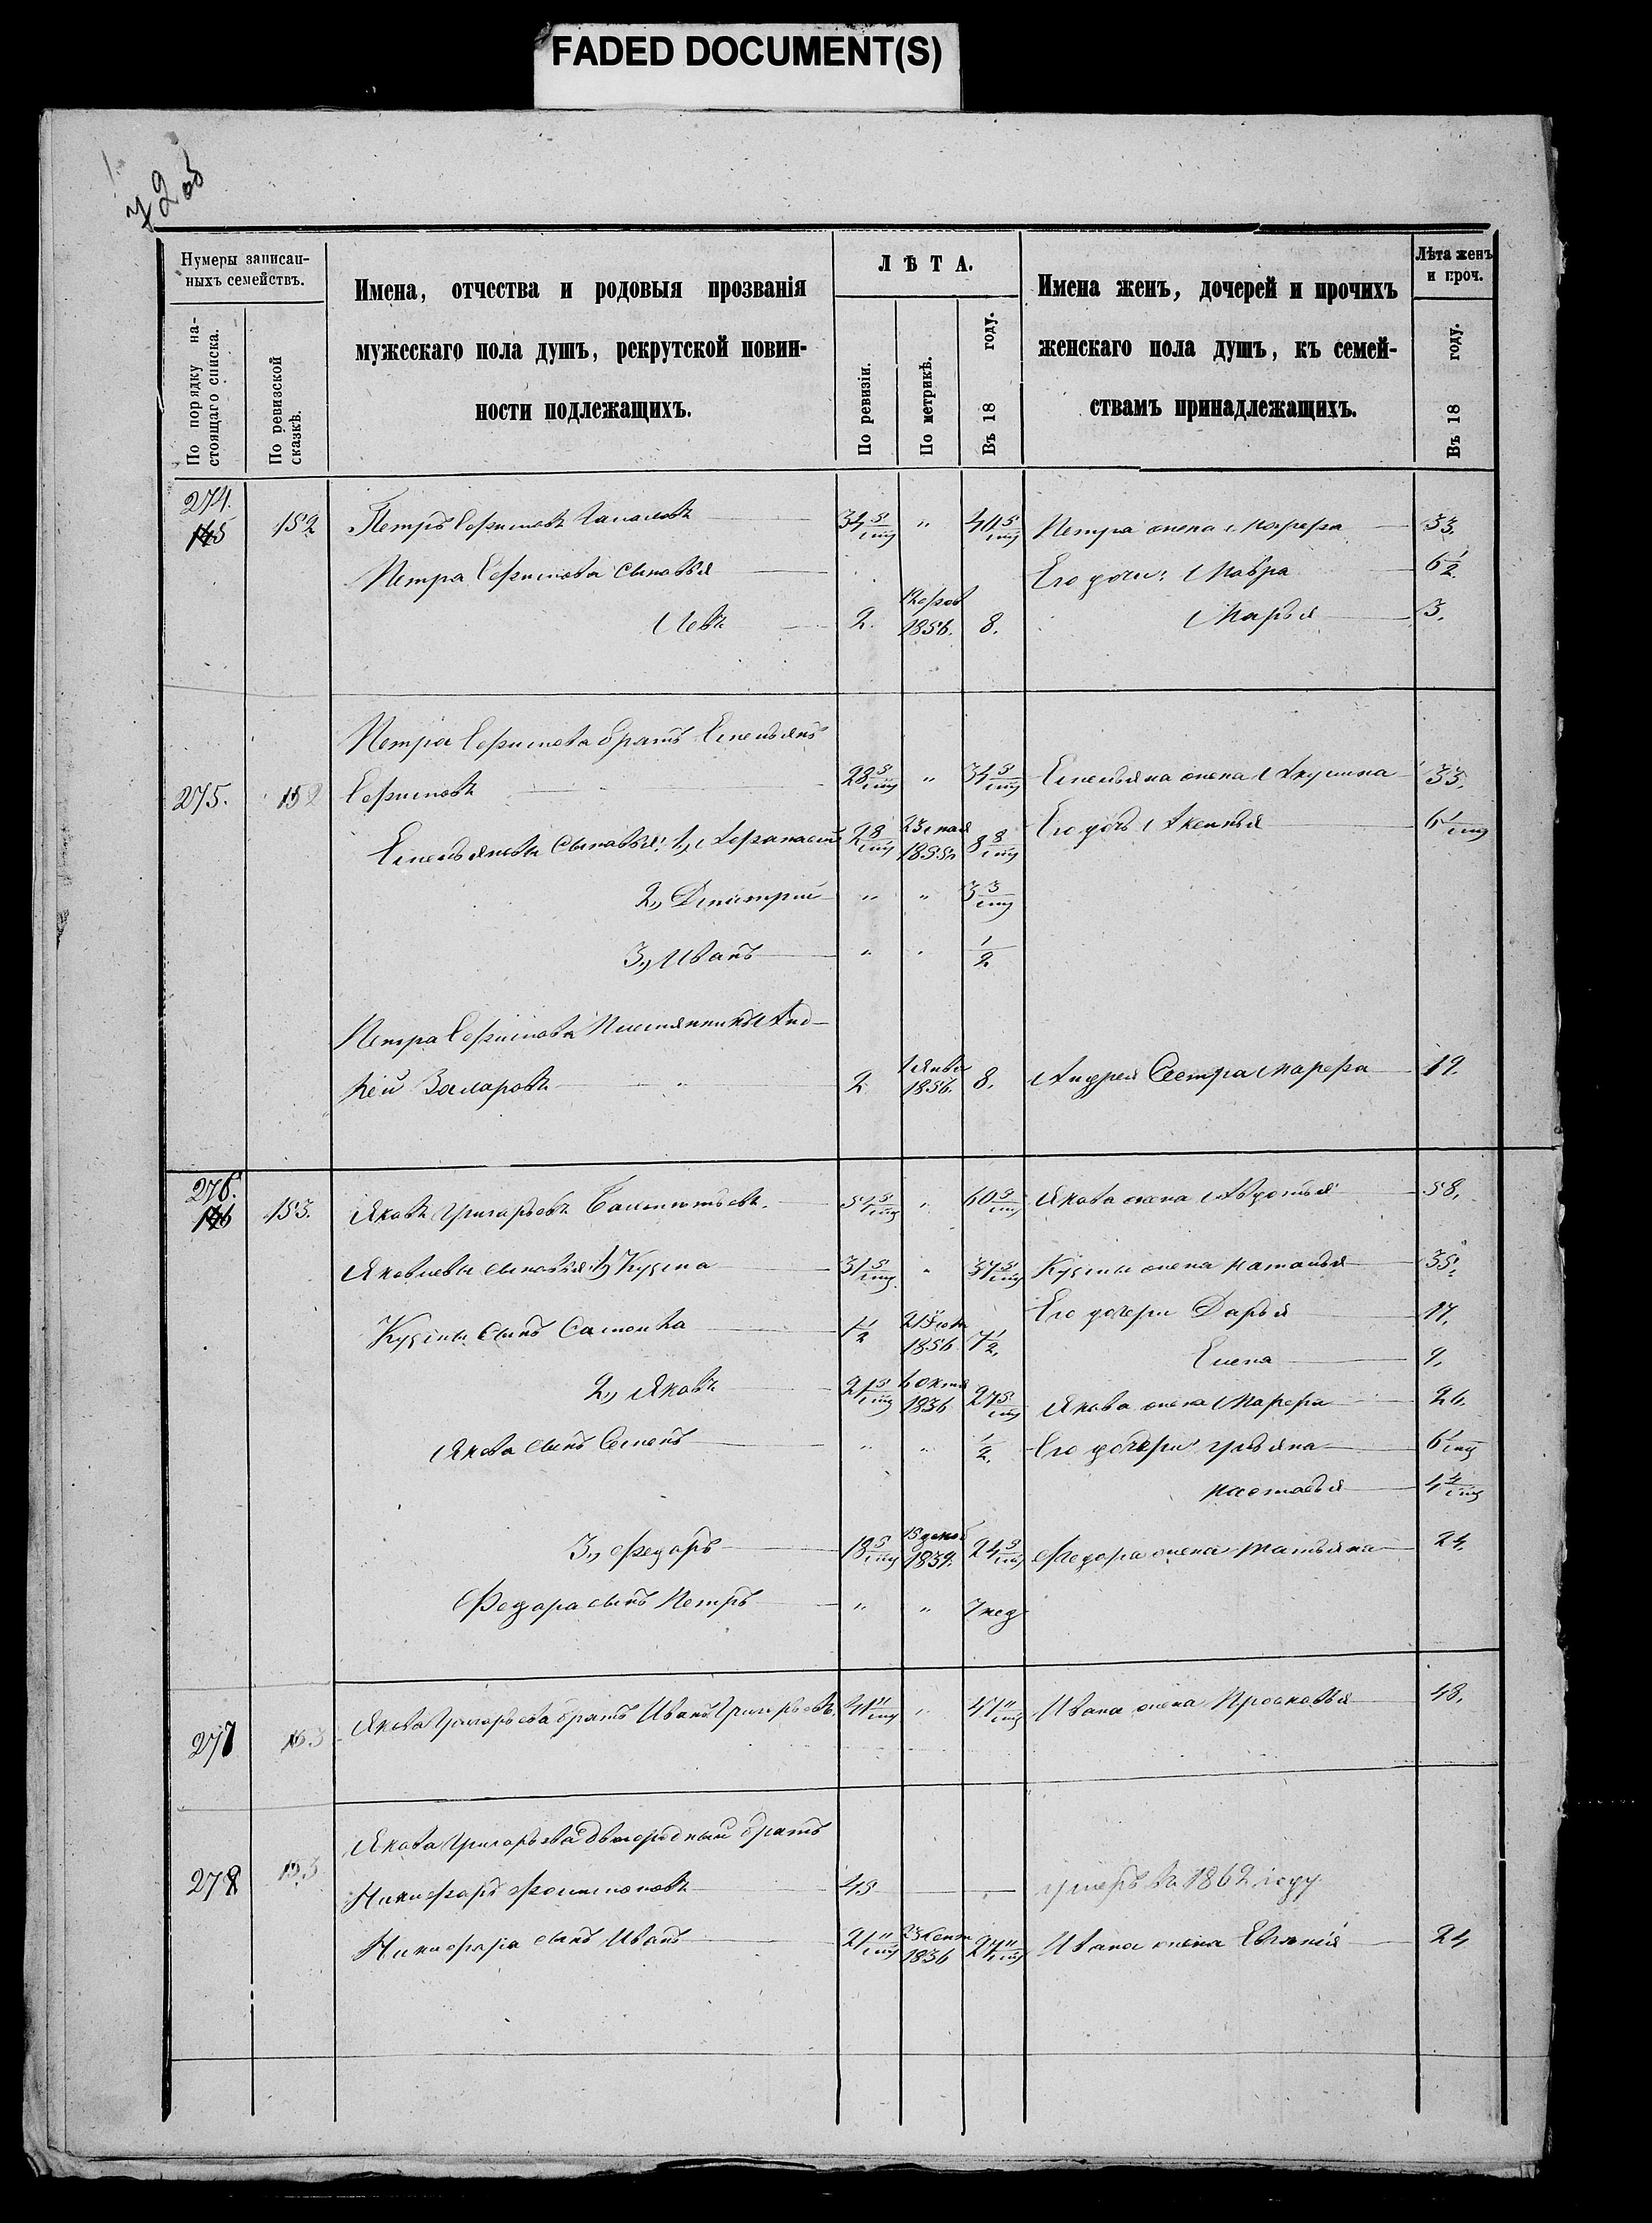 FADED DOCUMENT(S)
72 об
Нумеры записан-
ныхъ семействъ.
По порядку на-
стоящаго списка.
По ревизской
сказкѣ.
Имена, отчества и родовыя прозванія
мужескаго пола душъ, рекрутской повин-
ности подлежащихъ.
ЛѢТА.
По ревизіи.
По метрикѣ.
Въ 18 году.
Имена женъ, дочерей и прочихъ
женскаго пола душъ, къ семей-
ствамъ принадлежащихъ.
Лѣта женъ
и проч.
Въ 18 году.
274.
145 152 Петръ Ефимовъ 34 5/мц " 40 5/мц Петра жена 33.
Петра Ефимова сыновья Его дочи: Мавра 6 1/2.
Левъ 2. 1856. 8. Марья 3.
Петра Ефимова братъ Емельянъ
275. 152 Ефимовъ 28 5/мц " 34 5/мц Емельяна жена Акулина 33.
Емельяновы сыновья: 1, Афанасий 2 8/мц 23 мая 1855 8 8/мц Его дочь Аксинья 6 1/мц
2,, Дмитрий " " 3 3/мц
3,, Иванъ " " 1/2
Петра Ефимова племянникъ Анд-
рей Захаровъ 2 1 Янва 1856. 8. Андрея сестра Марфа 19.
276.
146 153. Яковъ Григорьевъ 54 5/мц " 60 5/мц Якова жена Авдотья 58.
Яковлевы сыновья 1, Кузма 31 5/мц " 37 5/мц Кузмы жена Наталья 35.
Кузмы сынъ 1 1/2 1856 7 1/2. Его дочери Дарья 17.
Елена 9.
2,, Яковъ 21 5/мц 6 Октя 1836 27 5/мц Якова жена Марфа 26.
Якова сынъ Семенъ " " 1/2. Его дочери Ульяна 6 1/мц
Настасья 4 4/мц
3,, Федоръ 18 5/мц 15 декаб 1839. 24 5/мц Федора жена Татьяна 24.
Федора сынъ Петръ " " 7 нед
277 153 Якова Григорьева братъ Иванъ Григорьевъ. 41 11/мц " 47 11/мц Ивана жена Просковья 48.
Якова Григорьева двоюродный братъ
278 153 Никифоръ 43 умеръ въ 1862 году
Никифора сынъ Иванъ 21 11/мц 1836 27 11/мц Ивана жена Евгенія 24